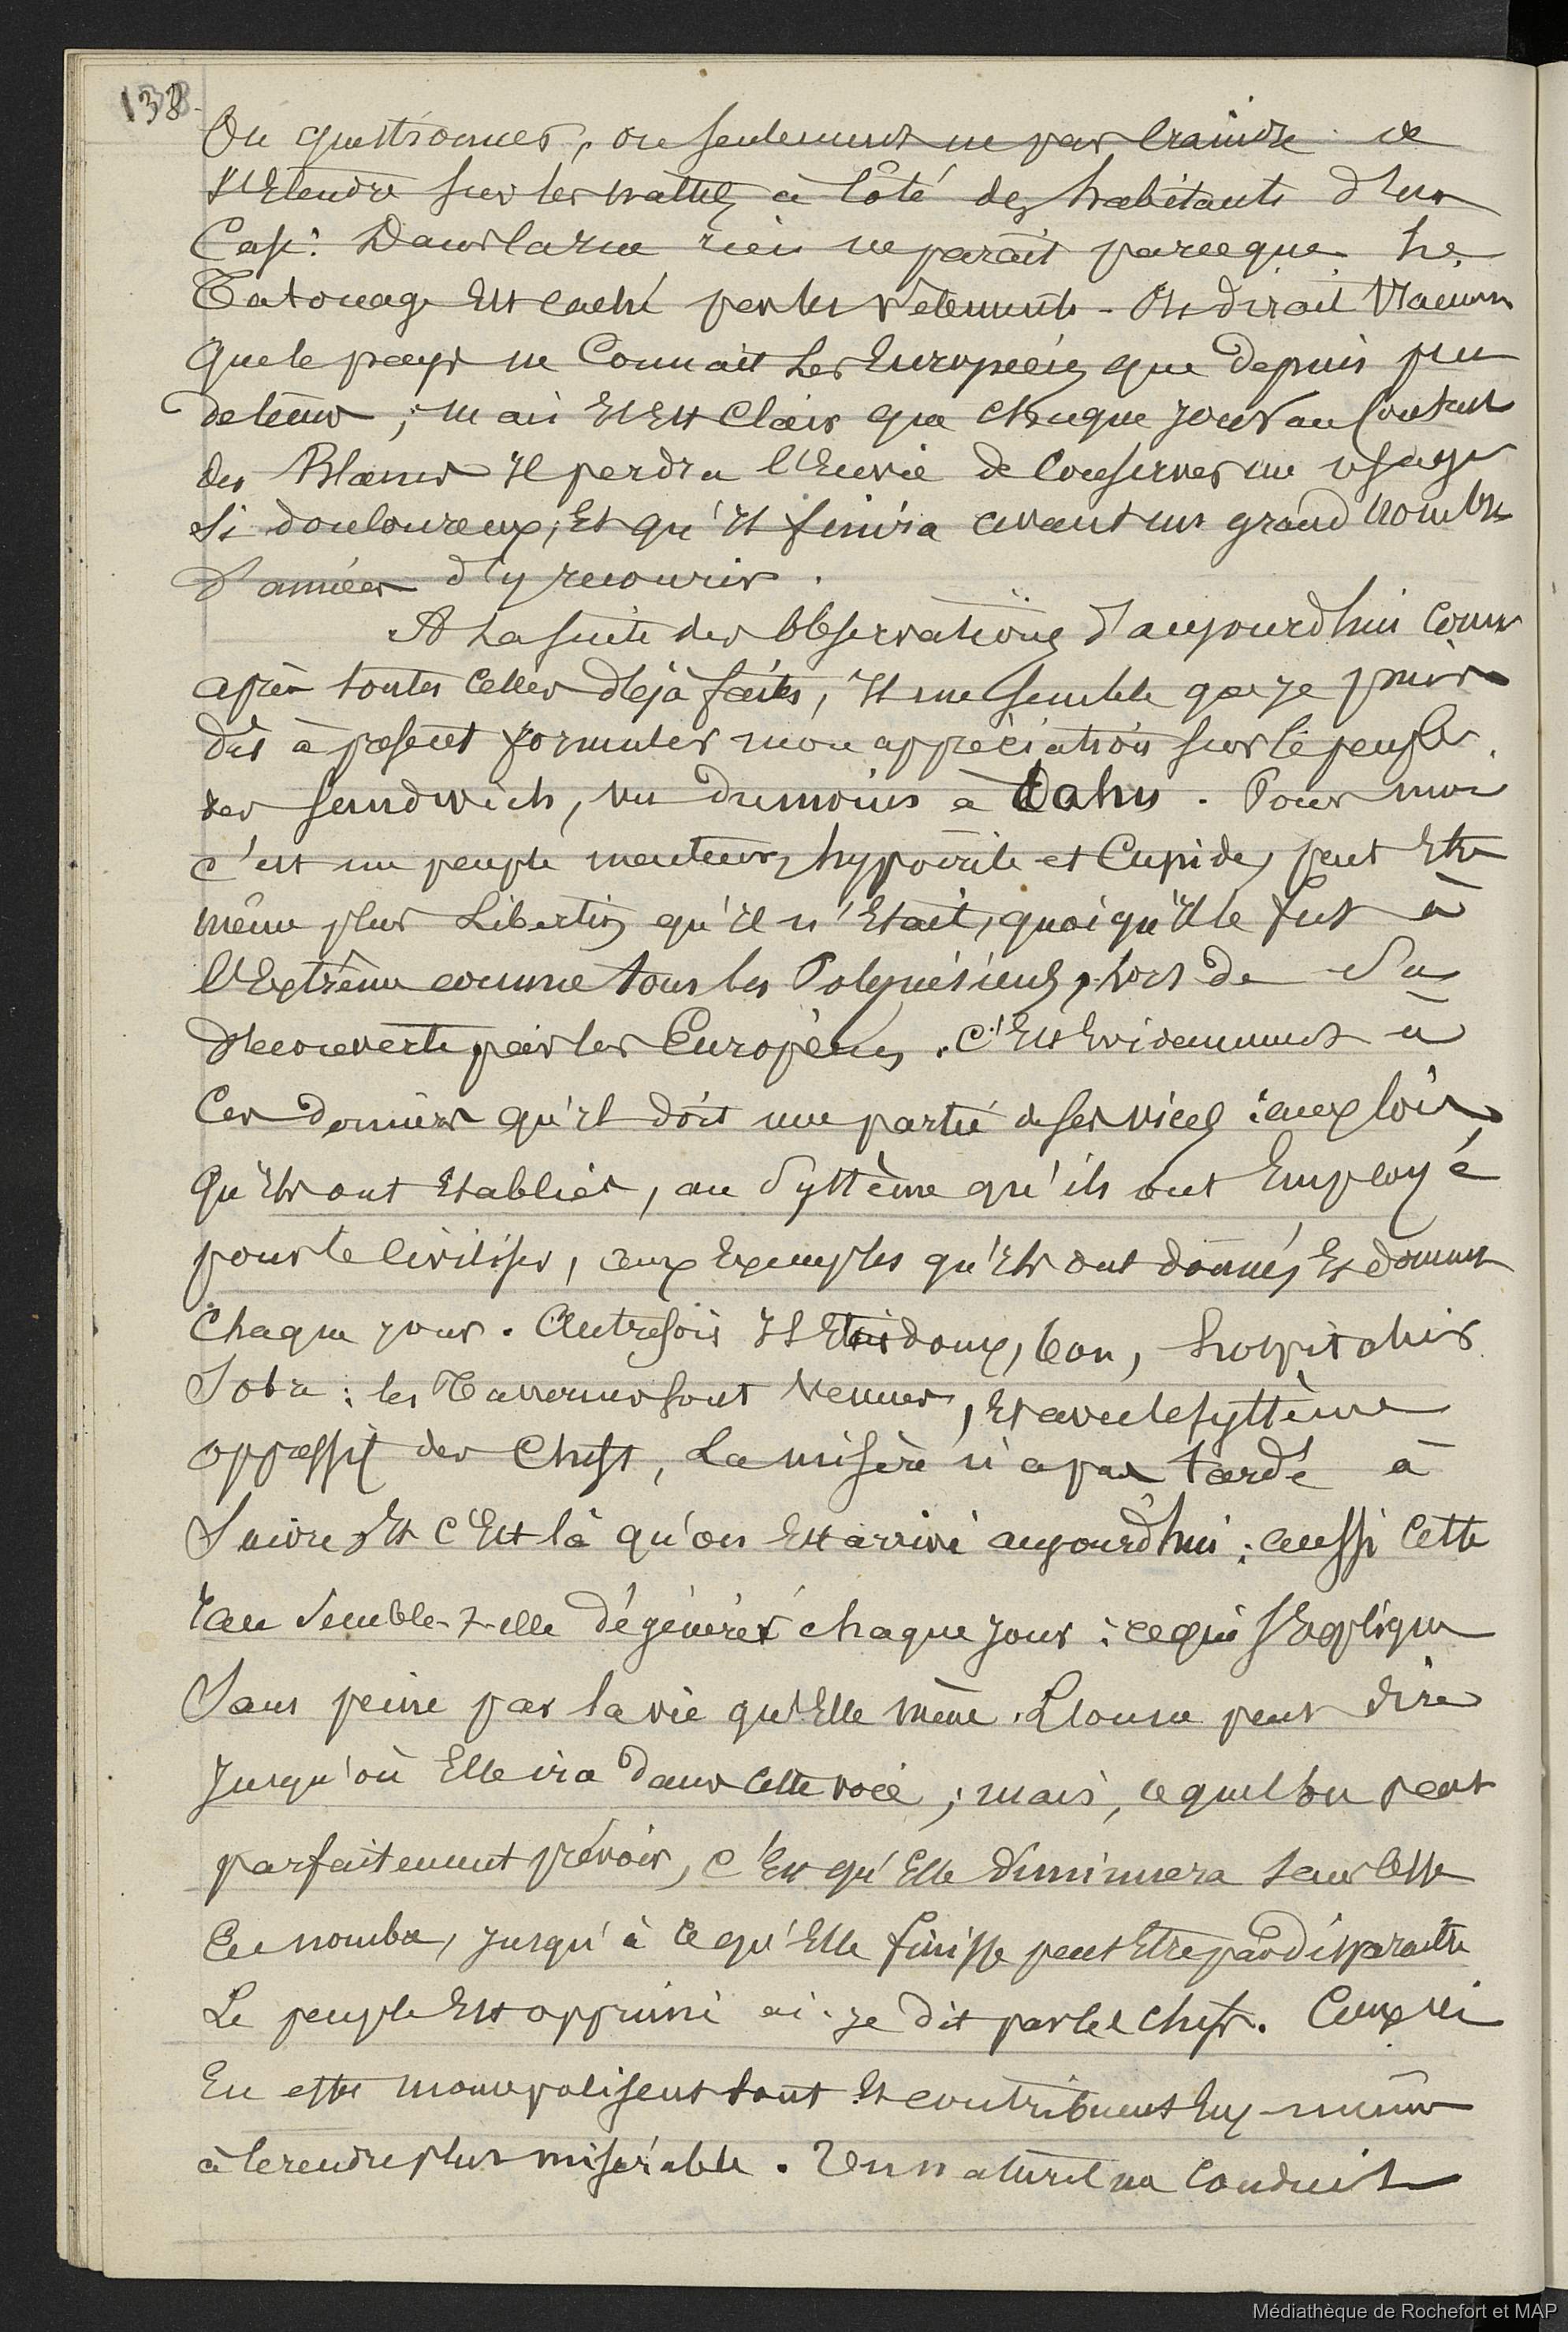 138
Ou questionner, ou seulement ne pas craindre de
s'Etendre sur les nattes à côté des habitants d'une
Case. Dans la rue rien ne paraît parce que le
Tatouage Est caché par les vêtements. On dirait vraiment
que le pays ne Connait Les Européens que depuis peu
de tems ; mais Il Est Clair que chaque jour au Contact
des Blancs Il perdra l'Envie de Conserver un usage
si douloureux, Et qu'Il finira avant un grand nombre
d'années d'y recourir.
A La suite des Observations d'aujourdhui Comme
après toutes Celles déjà faites, Il me semble que je puis
dès à présent formuler mon appréciation sur le peuple
des Sandwich, vu du moins à Oahu. Pour moi
c'est un peuple menteur, hypocrite et Cupide, peut Etre
même plus Libertin qu'Il n'Etait, quoiqu'Il le fut à
l'Extrême comme tous les Polynésiens, lors de Sa
découverte par les Européens. C'Est Evidemment à
Ces derniers qu'Il doit une partie de ses vices : aux lois
qu'Ils ont Etablies, au Système qu'ils ont Employé
pour le Civiliser, aux Exemples qu'Ils ont donnés Et donnent
Chaque jour. Autrefois Il Etait doux, bon, hospitalier
Sobre : les Tavernes sont venues, Et avec le système
oppressif des Chefs, La misère n'a pas tardé à
Suivre Et C'Est là qu'on Est arrivé aujourdhui ; aussi Cette
race Semble-t-elle dégénérer chaque jour : ce qui s'Explique
Sans peine par la vie qu'Elle mène. L'on ne peut dire
Jusqu'où Elle ira dans Cette voie ; mais, ce que l'on peut
parfaitement prévoir, C'Est qu'Elle diminuera sans Cesse
En nombre, jusqu'à ce qu'Elle finisse peut Etre par disparaître
Le peuple Est opprimé ai-je dit par les Chefs. Ceux ci
En effet monopolisent tout Et contribuent Eux-mêmes
à le rendre plus misérable. Un naturel me Conduit
Médiathèque de Rochefort et MAP